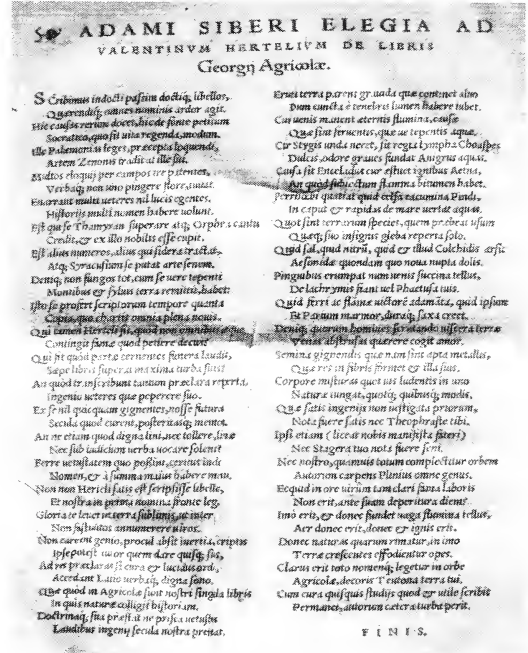 ADAMI SIBERI ELEGIA AD
VALENTINVM HERTELIVM DE LIBRIS
Georgij Agricolæ.
SCribimus indocti passim doctiq; libellos,
Quærendiq; omnes nominis ardor agit.
Hic causas rerum docet, hic de fonte petitum
Socratico, quo sit uita regenda, modum.
Ille Palæmonias leges, præcepta loquendi,
Artem Zenonis tradit at ille sui.
Multos eloquij per campos ire patentes,
Verbaq; non uno pingere flore, iuuat.
Enarrant multi ueteres nil lucis egentes,
Historijs multi nomen habere uolunt.
Est qui se Thamyran superare atq; Orphea cantu
Credit, & ex illo nobilis esse cupit.
Est alius numeros, alius qui sidera tractat,
Atq; Syracusium se putat arte senem.
Deniq; non fungos tot, cum se uere tepenti
Montibus & syluis terra remittit, habet:
Isto se profert scriptorum tempore quanta
Copia, quæ chartis omnia plena nouis.
Qui tamen Herteli fit, quod non omnibus æque
Contingit fama quod petiere decus?
Qui fit quod partæ cernentes funera laudis,
Sæpe libri supera maxima turba sunt?
An quod transcribunt tantum præclara reperta,
Ingenio ueteres quæ peperere suo.
Ex se nil quicquam gignentes, nosse futura
Secula quod curent, posteritasq; memor.
An ne etiam quod digna lini, nec tollere, limæ
Nec sub iudicium uerba uocare solent?
Ferre uetustatem quo possint, certus inde
Nomen, & à summa maius habere manu.
Non non Herteli satis est scripsisse libellos,
Et nostra in prima nomina fronte legi.
Gloria te leuet in terra sublimis, ut inter
Non fugituos annumerere uiros.
Non carent genio, procul absit inertia, criptis
Ipse potest uiuor quem dare quisq; suis,
Ad res præclaras sit cura & lucidus ordo,
Accedant Latio uerbaq; digna sono.
Quæ quod in Agricolæ sunt nostri singula libris
In quis naturæ colligit historiam.
Doctrinaq; sua præstat ne prisca uetustas
Laudibus ingenij secula nostra premat.
Eruet terra parens grauida quæ continet aluo
Dum cuncta è tenebris lumen habere iubet.
Cur uenis manent æternis flumina, causæ
Quæ sint feruentis, quæ ue tepentis aquæ.
Cur Stygis unda necet, sit regia lympha Choaspes
Dulcis, odore graues fundat Anigrus aquas.
Causa sit Enceladus cur æstuet ignibus Aetna,
An quod subiectum flamma bitumen habet.
Perrhœbi quatiat quid celsa cacumina Pindi,
In caput & rapidas de mare uertat aquas.
Quot sint terrarum species, quem præbeat usum
Quæq; suo insignis gleba reperta solo,
Quid sal, quid nitrū, quid & illud Colchidis arsit
Aesonidæ quondam quo noua nupta dolis.
Pinguibus erumpat num uenis succina tellus,
De lachrymis fiant uel Phaetusa tuis.
Quid ferri ac flauæ uictore adamāta, quid ipsum
Et Parum marmor, duraq; saxa creet.
Deniq; quorum homines scrutando uiscera terræ
Venas abstrusas quærere cogit amor.
Semina gignendis quæ nam sint apta metallis,
Quæ res in fibris formet & illa suis.
Corpore misturas quot uis ludentis in uno
Natura iungat, quotq; quibusq; modis.
Quæ satis ingenijs non uestigata priorum,
Nota fuere satis nec Theophraste tibi.
Ipsi etiam (liceat nobis manifesta fateri)
Nec Stagera tuo nota fuere seni.
Nec nostro, quamuis totum complectitur orbem
Autorum carpens Plinius omne genus.
Ecquid in ore uirûm tam clari fama laboris
Non erit, ante suam deperitura diem?
Imo erit, & donec fundet uaga flumina tellus,
Aer donec erit, donec & ignis erit.
Donec naturas quarum rimatur, in imo
Terræ crescentes effodientur opes.
Clarus erit toto nomenq; legetur in orbe
Agricolæ, decoris Teutona terra tui.
Cum cura quisquis studijs quod & utile scribit
Permanet, autorum cætera turba perit.
FINIS.